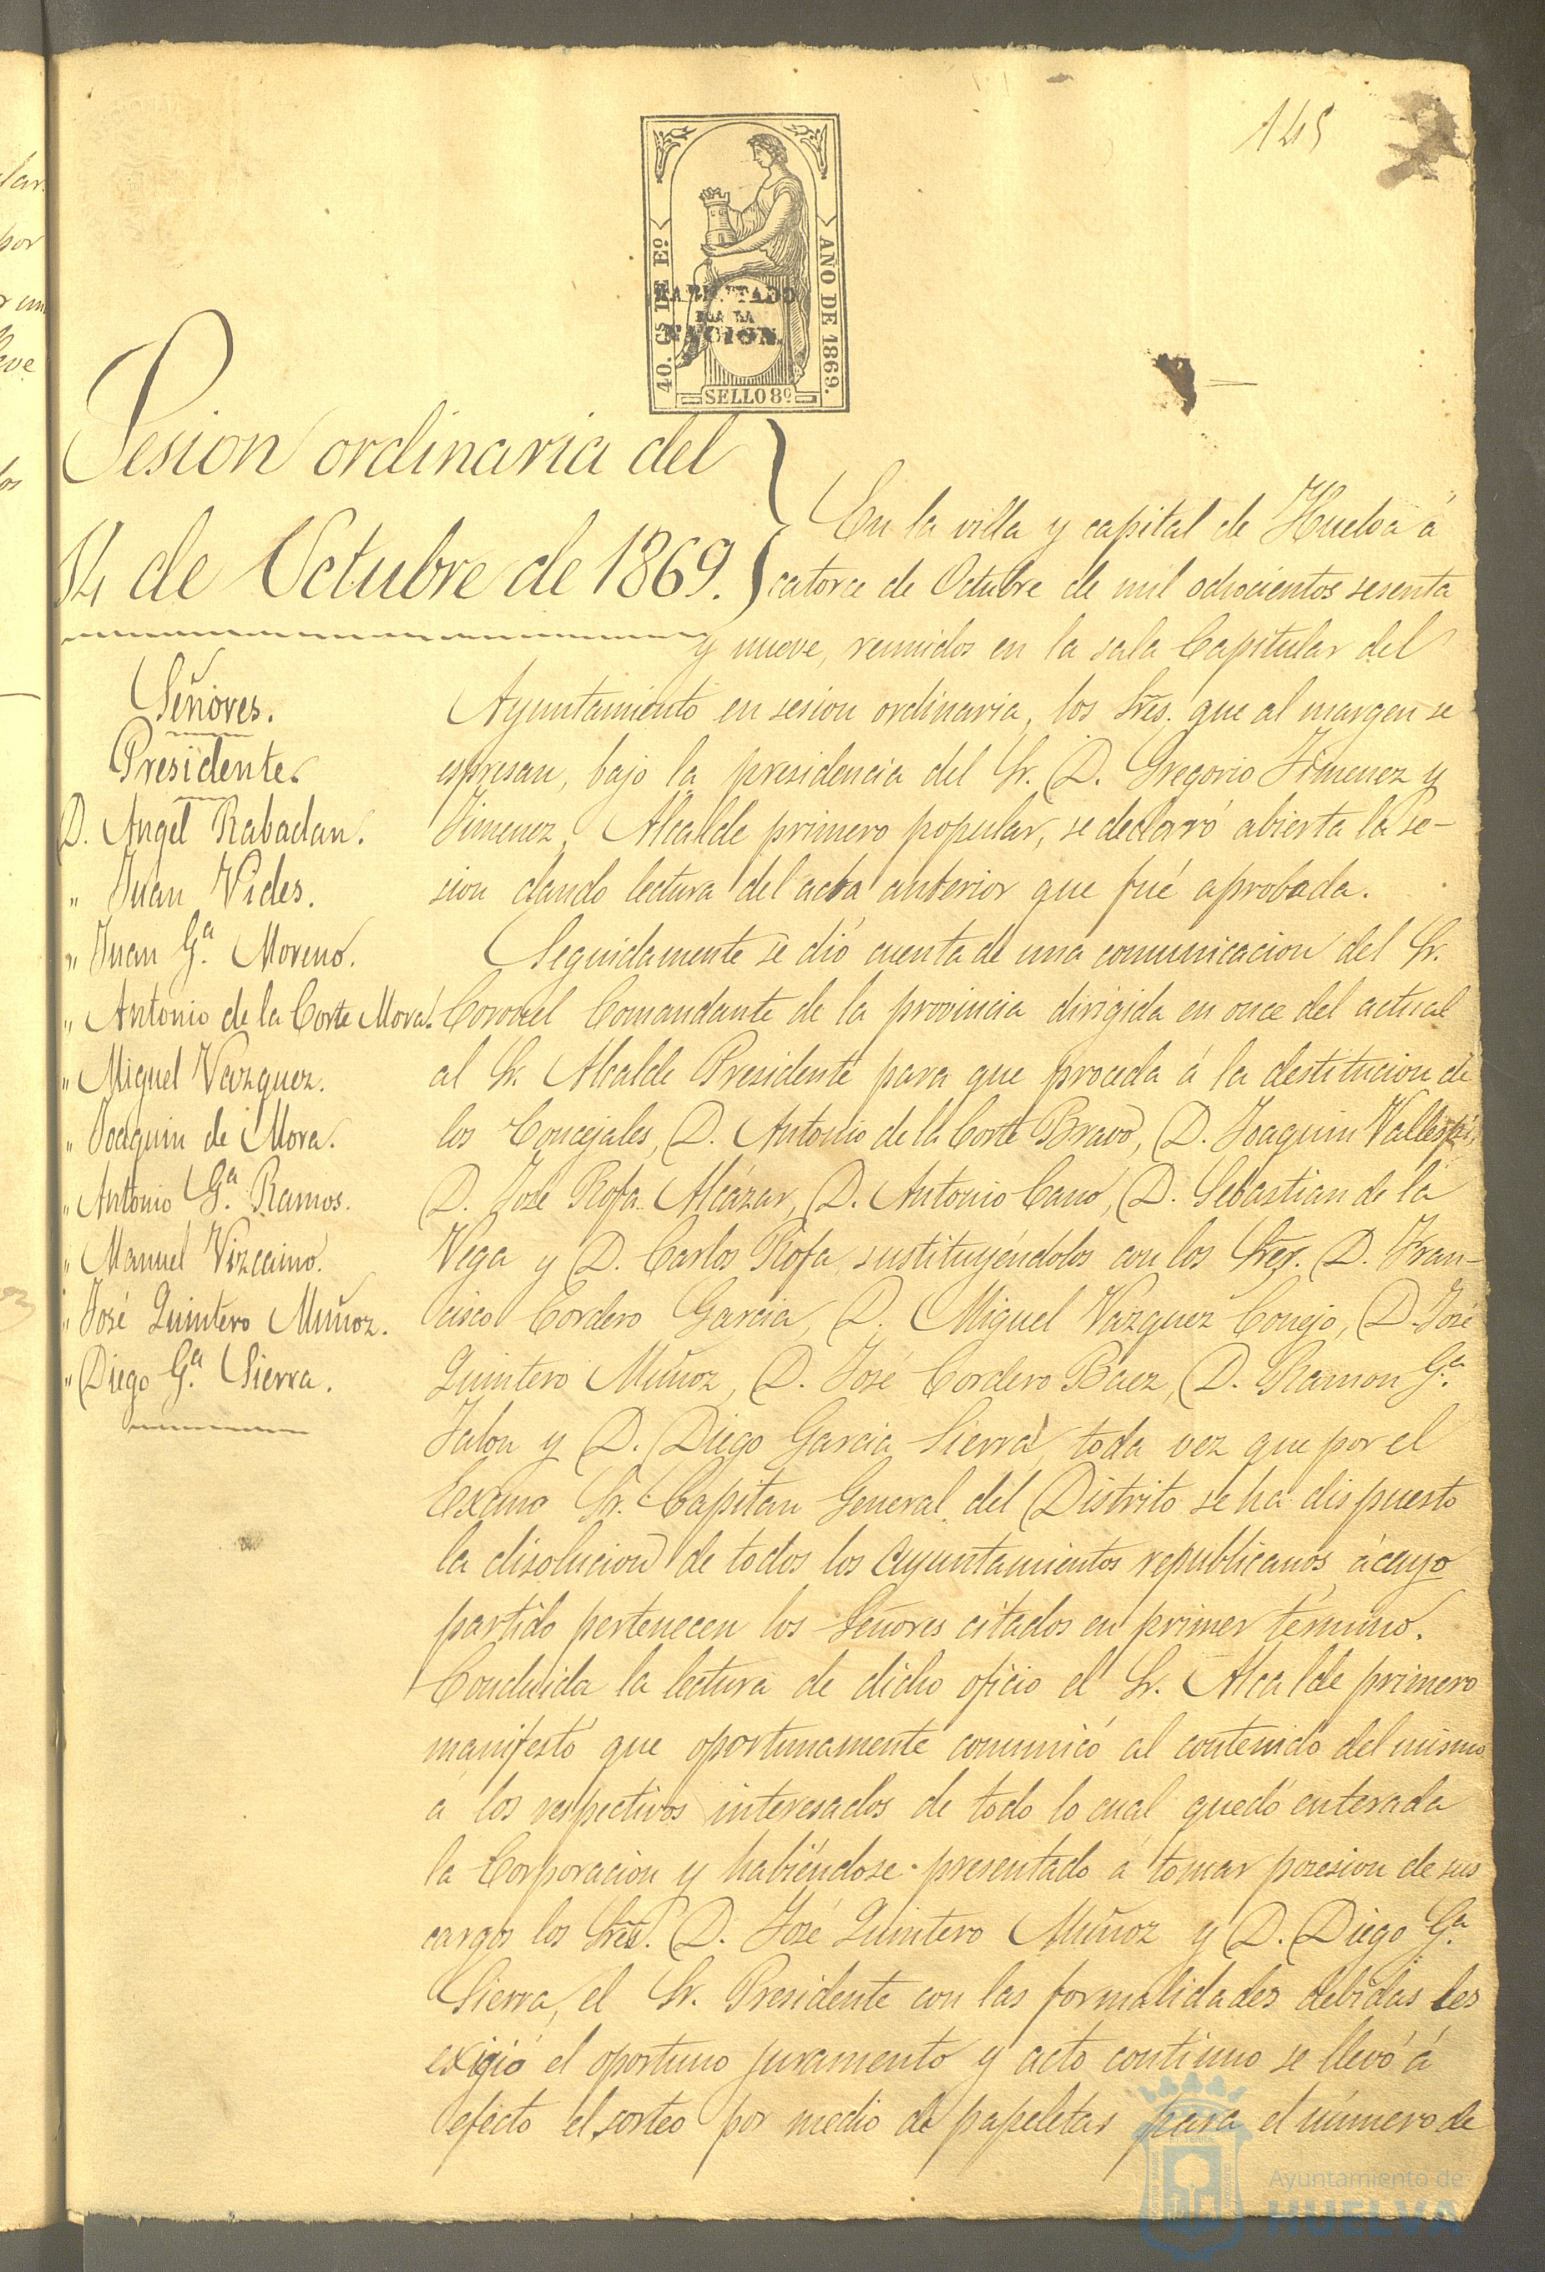 145
40. CS DE Eº
AÑO DE 1869.
HABILITADO
POR LA
NACION.
SELLO 8º
Sesion ordinaria del
14 de Octubre de 1869.
Señores.
Presidente.
D. Angel Rabadan.
" Juan Vides.
" Juan Gª. Moreno.
" Antonio de la Corte Mora.
" Miguel Vazquez.
" Joaquin de Mora.
" Antonio Gª. Ramos.
" Manuel Vizcaino.
" José Quintero Muñoz.
" Diego Gª. Sierra.
En la villa y capital de Huelva á
catorce de Octubre de mil ochocientos sesenta
y nueve, reunidos en la sala Capitular del
Ayuntamiento en sesion ordinaria, los Sres. que al margen se
espresan, bajo la presidencia del Sr. D. Gregorio Jimenez y
Jimenez, Alcalde primero popular, se declaró abierta la se-
sion dando lectura del acta anterior que fué aprobada.
Seguidamente se dió cuenta de una comunicacion del Sr.
Coronel Comandante de la provincia dirigida en once del actual
al Sr. Alcalde Presidente para que proceda á la destitucion de
los Concejales, D. Antonio de la Corte Bravo, D. Joaquin Vallespi,
D. José Rofa Alcázar, D. Antonio Cano, D. Sebastian de la
Vega y D. Carlos Rofa, sustituyéndolos con los Sres. D. Fran-
cisco Cordero Garcia, D. Miguel Vazquez Conejo, D. José
Quintero Muñoz, D. José Cordero Baez, D. Ramon Gª.
Jalon y D. Diego Garcia Sierra, toda vez que por el
Excmo Sr. Capitan General del Distrito se ha dispuesto
la disolucion de todos los ayuntamientos republicanos, á cuyo
partido pertenecen los Señores citados en primer término.
Concluida la lectura de dicho oficio el Sr. Alcalde primero
manifestó que oportunamente comunicó al contenido del mismo
á los respectivos interesados de todo lo cual quedó enterada
la Corporacion y habiéndose presentado á tomar posesion de sus
cargos los Sres. D. José Quintero Muñoz y D. Diego Gª.
Sierra, el Sr. Presidente con las formalidades debidas les
exigió el oportuno juramento y acto continuo se llevó á
efecto el sorteo por medio de papeletas para el número de
Ayuntamiento de
HUELVA